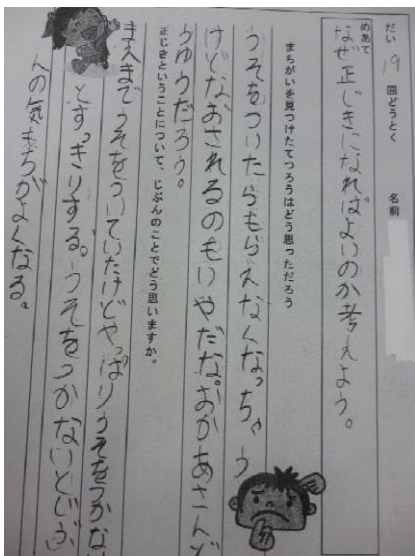 だい19回どうとく 名前
めあて
なぜ正じきになればよいのか考えよう。
まちがいを見つけたてつろうはどう思っただろう
うそをついたらもらえなくなっちゃう
けどなおされるのもいやだな。おかあさんど
うゆうだろう。
正じきということについて、じぶんのことでどう思いますか。
まえまでうそをついていたけどやっぱりうそをつかな
とすっきりする。うそをつかないとじぶ
んの気もちがよくなる。